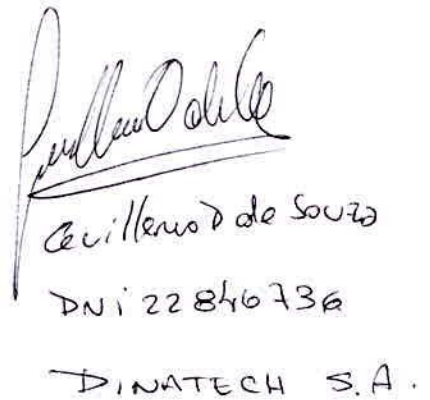 Guillermo D de Souza
DNi 22846736
DINATECH S.A.